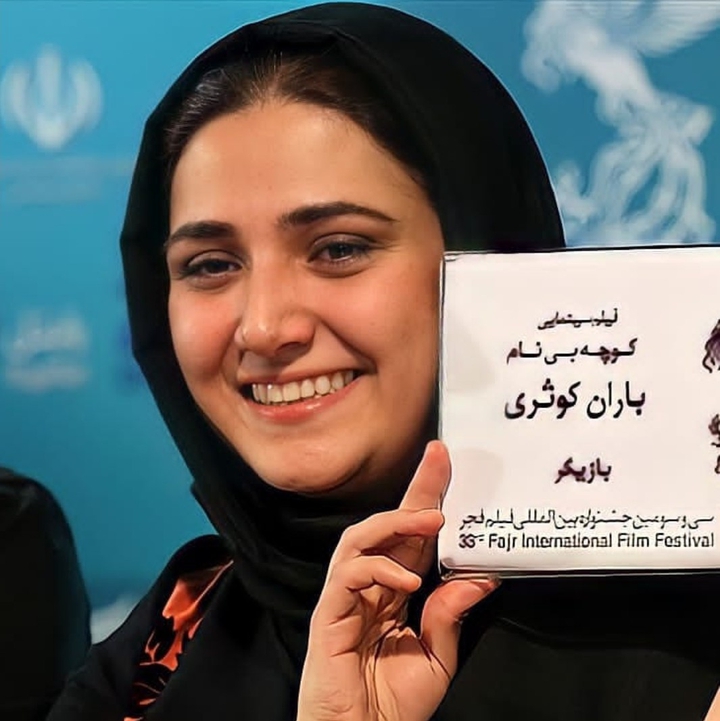 فیلم سینمایی
کوچه بی نام
باران کوثری
بازیگر
سی و سومین جشنواره بین المللی فیلم فجر
33rd Fajr International Film Festival